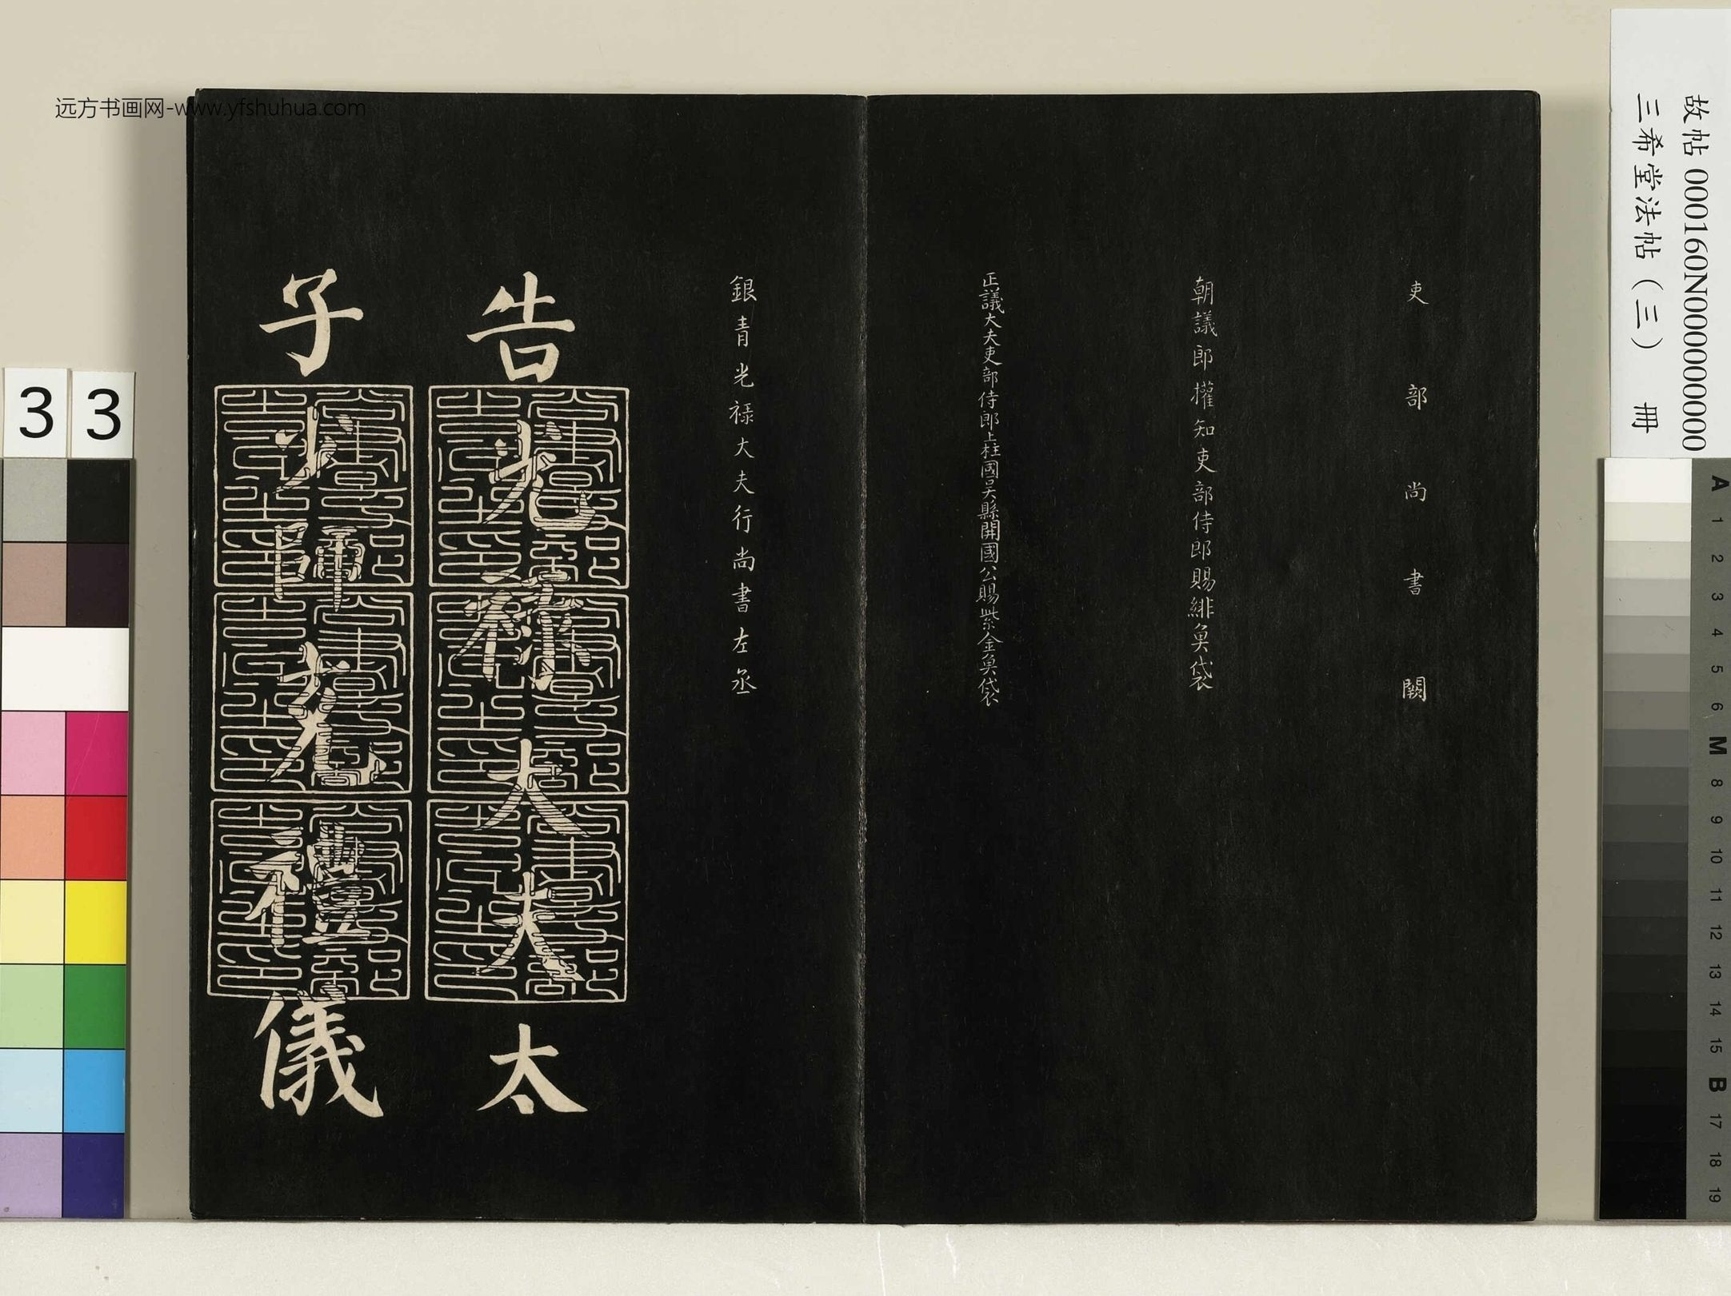 远方书画网-www.yfshuhua.com
故帖 000160N000000000
三希堂法帖（三） 冊
吏部尚書闕
朝議郎權知吏部侍郎賜緋魚袋
正議大夫吏部侍郎上柱國吳縣開國公賜紫金魚袋
銀青光祿大夫行尚書左丞
告光祿大夫太
子少師充禮儀
33
A
1
2
3
4
5
6
M
8
9
10
11
12
13
14
15
B
17
18
19